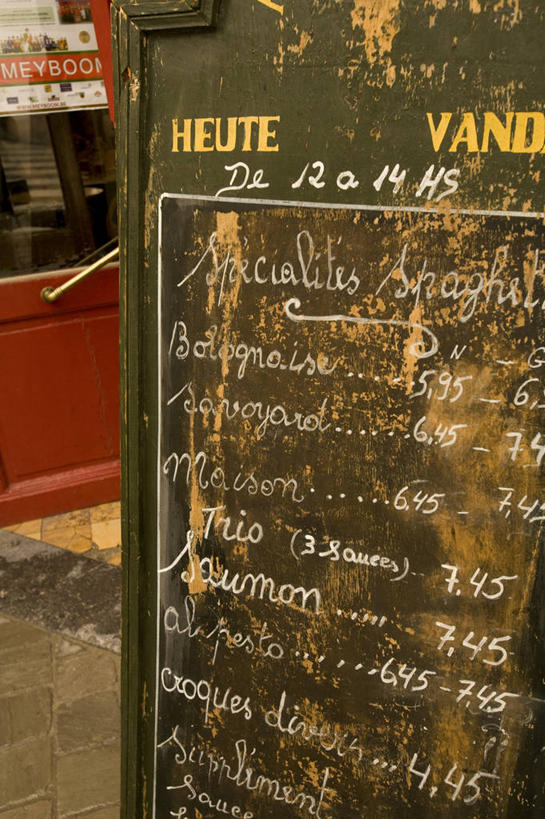 MEYBOOM
WWW.MEYBOOM.BE
HEUTE VAND
De 12 a 14 HS
Spécialités Spaghet
N - G
Bolognaise ...... 5,95 - 6,
Savoyard ...... 6,45 - 7,4
Maison ...... 6,45 - 7,45
Trio (3 sauces) .. 7,45
Saumon ...... 7,45
al pesto ...... 6,45 - 7,45
croques divers ... 4,45
Supplément
Sauce